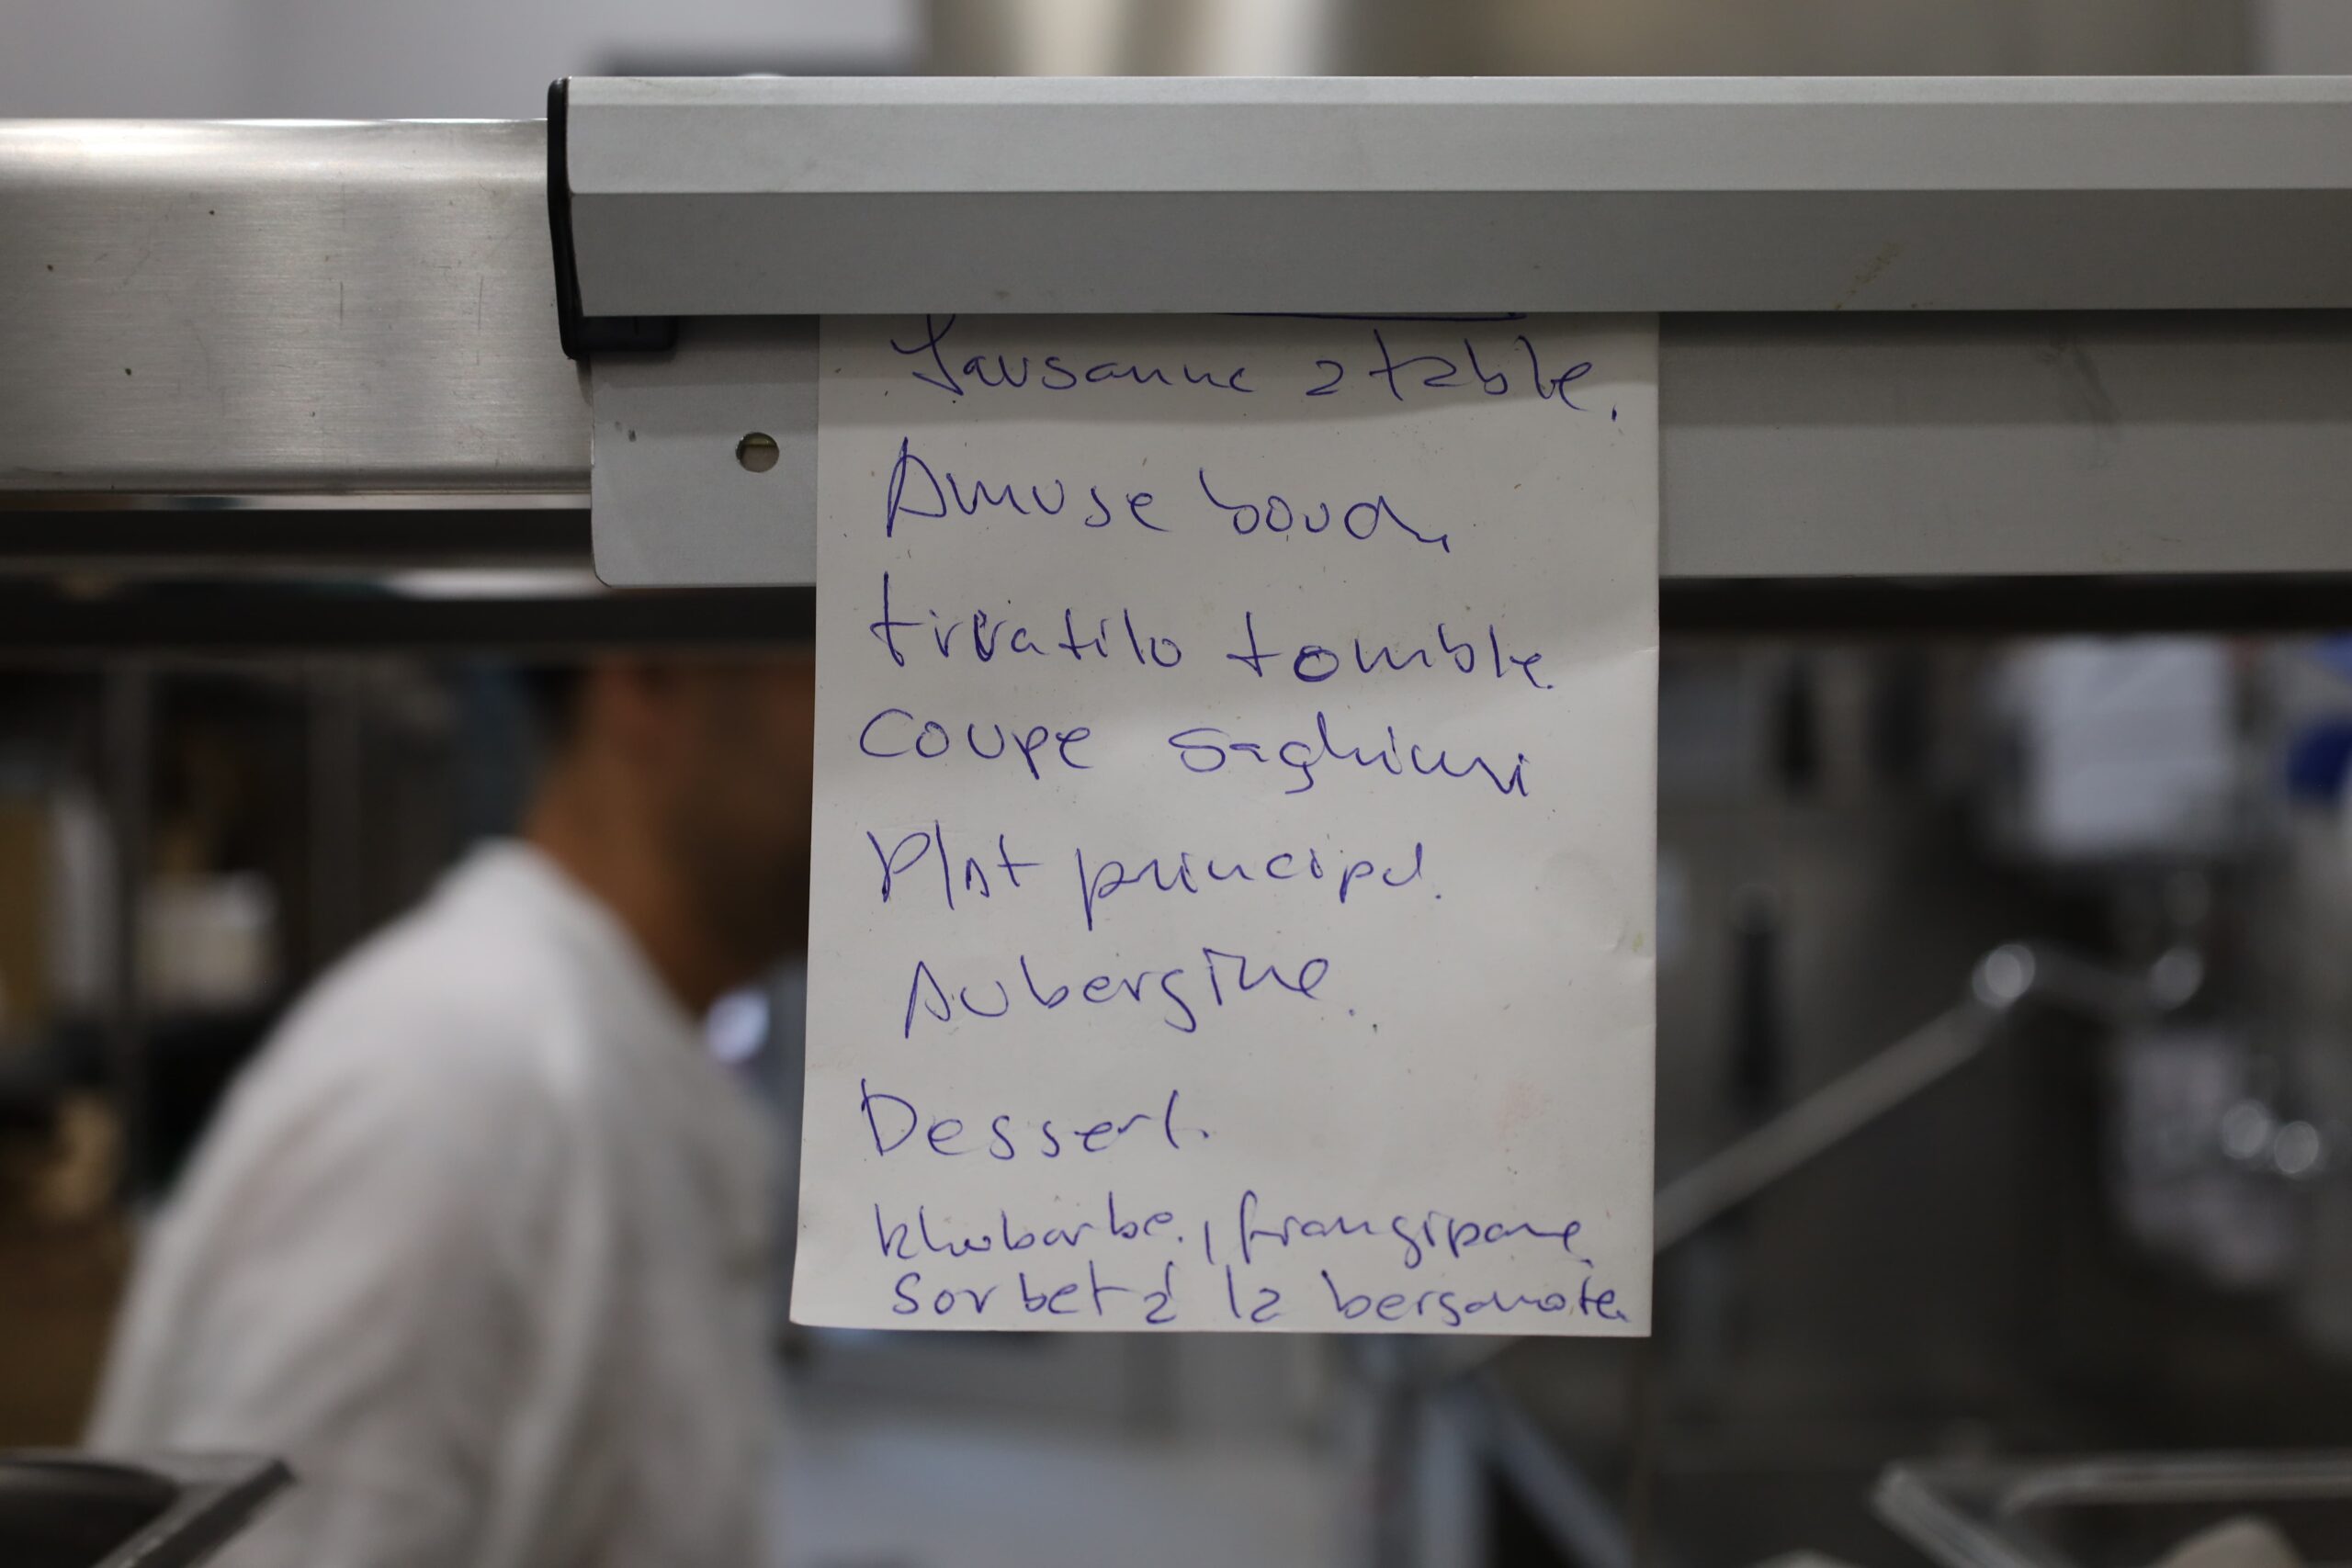 Lausanne a table.
Amuse bouch
tomble
Coupe
Plat principal.
Aubergine.
Dessert.
Rhubarbe, frangipane
Sorbet à la bergamote